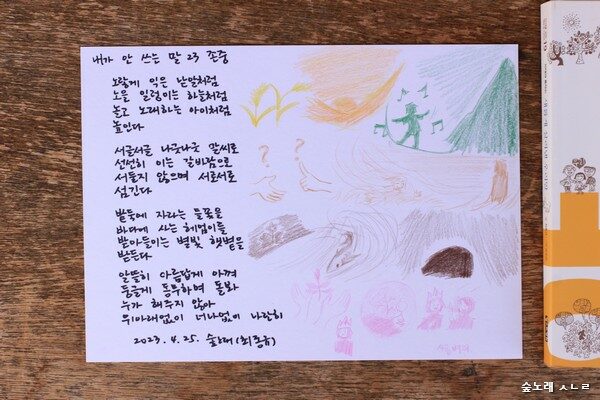 내가 안 쓰는 말 23 존중
노랗게 익은 낟알처럼
노을 일렁이는 하늘처럼
놀고 노래하는 아이처럼
높인다
서글서글 나긋나긋 말씨로
선선히 이는 갈바람으로
서둘지 않으며 서로서로
섬긴다
밭둑에 자라는 들꽃을
바다에 사는 헤엄이를
받아들이는 별빛 햇볕을
받든다
알뜰히 아름답게 아껴
둥글게 동무하며 돌봐
누가 해놓지 않아
위아래없이 너나없이 나란히
2023. 4. 25. 숲노래 (최종규)
숲노래 ㅅㄴㄹ